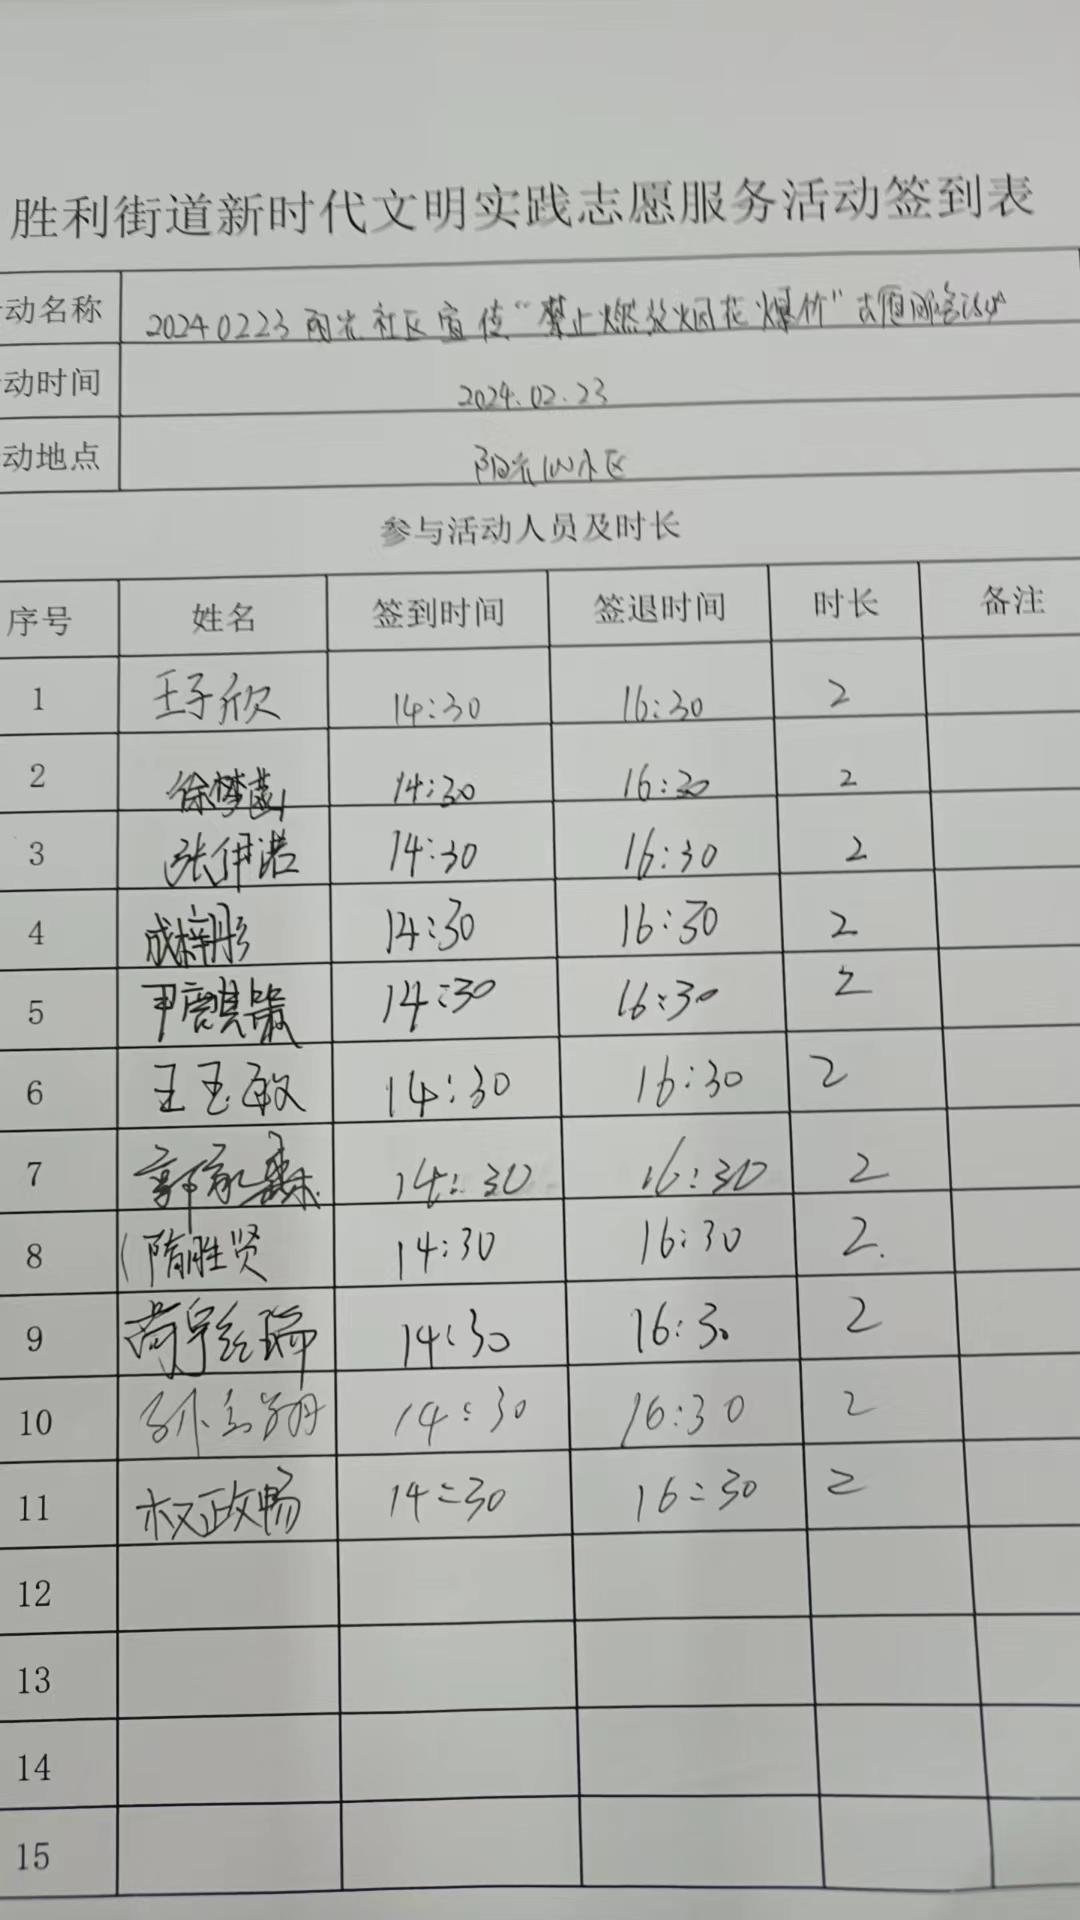 胜利街道新时代文明实践志愿服务活动签到表
动名称 20240223阳光社区宣传“禁止燃放烟花爆竹”志愿服务活动
动时间 2024.02.23
动地点 阳光100小区
参与活动人员及时长
序号 姓名 签到时间 签退时间 时长 备注
1 王子欣 14:30 16:30 2
2 徐梦菡 14:30 16:30 2
3 张伊诺 14:30 16:30 2
4 成梓彤 14:30 16:30 2
5 14:30 16:30 2
6 王玉敏 14:30 16:30 2
7 郭家森 14:30 16:30 2
8 隋胜贤 14:30 16:30 2.
9 14:30 16:30 2
10 14:30 16:30 2
11 权政畅 14:30 16:30 2
12
13
14
15